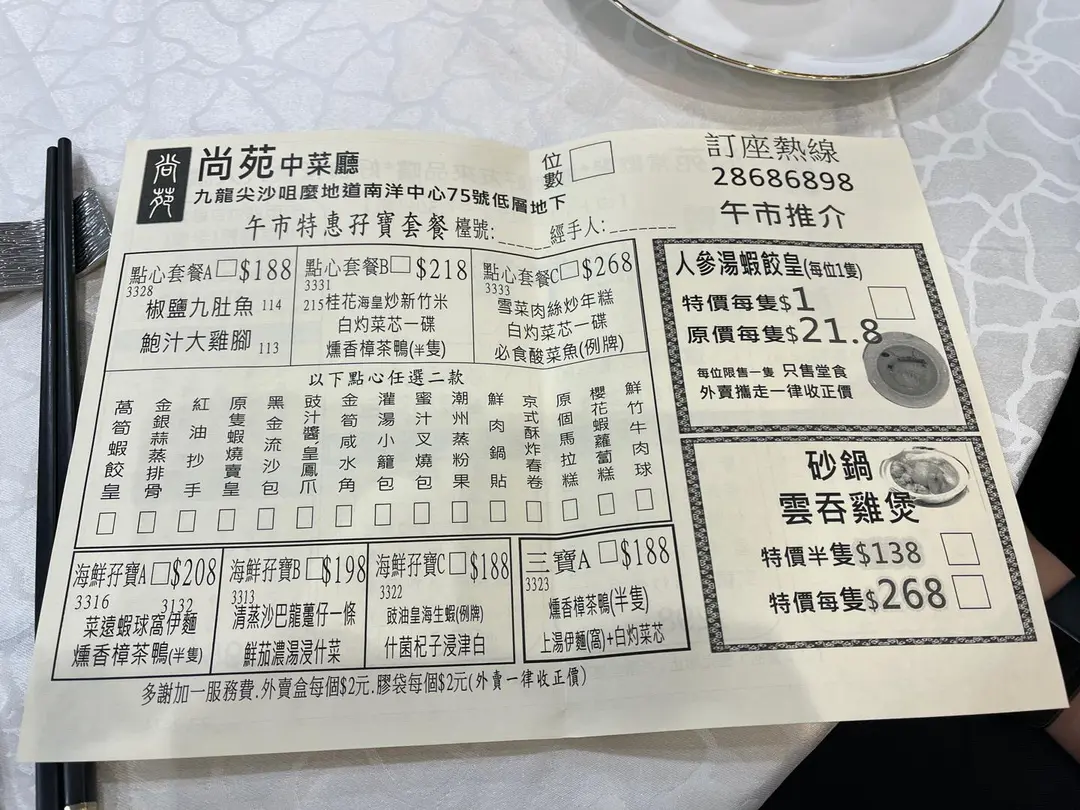 尚苑
尚苑中菜廳
九龍尖沙咀麼地道南洋中心75號低層地下
位數
訂座熱線
28686898
午市特惠孖寶套餐 檯號:_____ 經手人:_______
午市推介
點心套餐A $188
3328
椒鹽九肚魚 114
鮑汁大雞腳 113
點心套餐B $218
3331
215 桂花海皇炒新竹米
白灼菜芯一碟
燻香樟茶鴨(半隻)
點心套餐C $268
3333
雪菜肉絲炒年糕
白灼菜芯一碟
必食酸菜魚(例牌)
以下點心任選二款
萵筍蝦餃皇
金銀蒜蒸排骨
紅油抄手
原隻蝦燒賣皇
黑金流沙包
豉汁醬皇鳳爪
金筍咸水角
灌湯小籠包
蜜汁叉燒包
潮州蒸粉果
鮮肉鍋貼
京式酥炸春卷
原個馬拉糕
櫻花蝦蘿蔔糕
鮮竹牛肉球
海鮮孖寶A $208
3316 3132
菜遠蝦球窩伊麵
燻香樟茶鴨(半隻)
海鮮孖寶B $198
3313
清蒸沙巴龍躉仔一條
鮮茄濃湯浸什菜
海鮮孖寶C $188
3322
豉油皇海生蝦(例牌)
什菌杞子浸津白
三寶A $188
3323
燻香樟茶鴨(半隻)
上湯伊麵(窩)+白灼菜芯
多謝加一服務費.外賣盒每個$2元.膠袋每個$2元(外賣一律收正價)
人參湯蝦餃皇(每位1隻)
特價每隻$1
原價每隻$21.8
每位限售一隻 只售堂食
外賣攜走一律收正價
砂鍋
雲吞雞煲
特價半隻$138
特價每隻$268